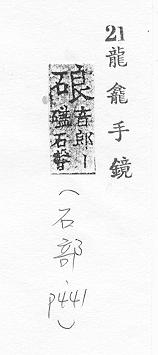 21龍龕手鏡
硠音郎｜
礚石聲
（石部．p441）